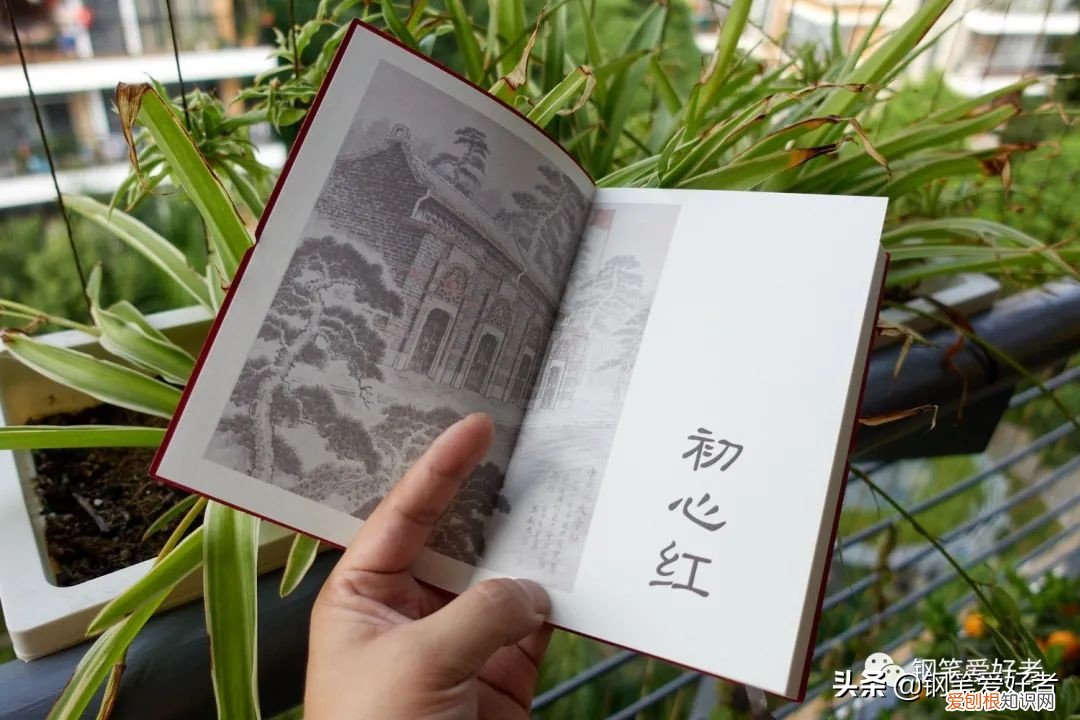 初
心
红
钢笔爱好者
头条@钢笔爱好者
爱刨根知识网